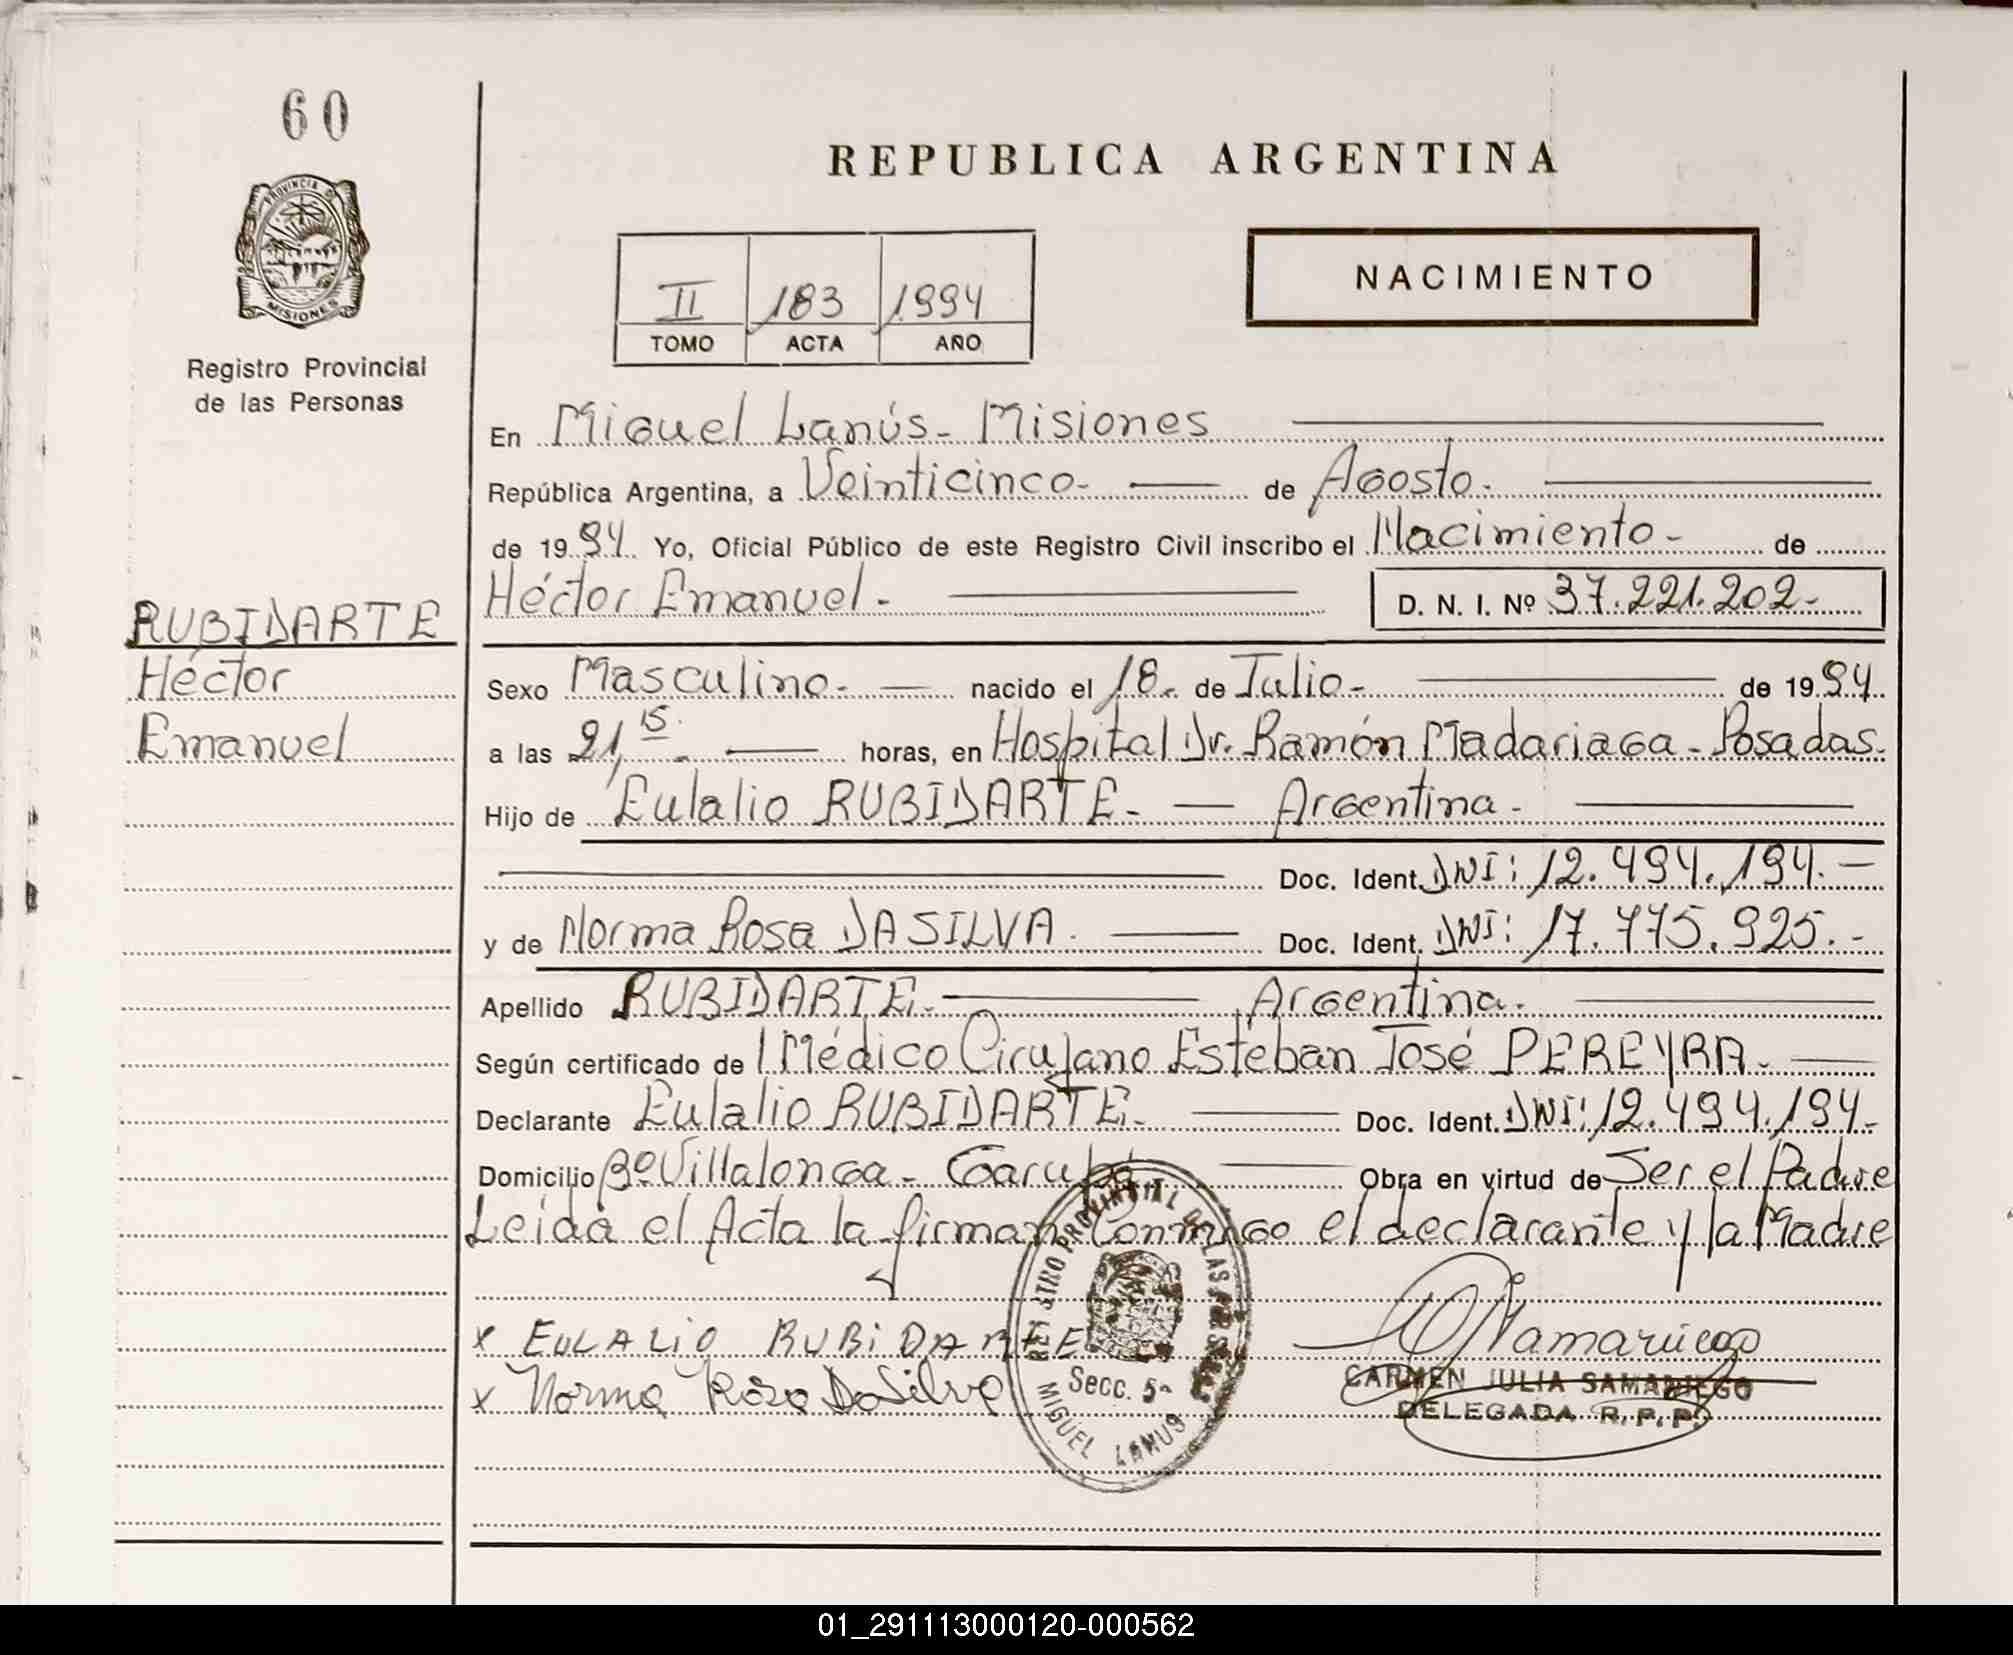 60
REPUBLICA ARGENTINA
PROVINCIA DE MISIONES
Registro Provincial
de las Personas
II 183 1994
TOMO ACTA AÑO
NACIMIENTO
En Miguel Lanús - Misiones
República Argentina, a Veinticinco - de Agosto.
de 1994. Yo, Oficial Público de este Registro Civil inscribo el Nacimiento - de
Héctor Emanuel - D. N. I. Nº 37.221.202-
RUBIDARTE
Héctor
Emanuel
Sexo Masculino - nacido el 18 - de Julio - de 1994.
a las 21,15 - horas, en Hospital Dr. Ramón Madariaga - Posadas.
Hijo de Eulalio RUBIDARTE - Argentina -
Doc. Ident. DNI: 12.494.194. -
y de Norma Rosa DASILVA. Doc. Ident. DNI: 17.775.925. -
Apellido RUBIDARTE - Argentina.
Según certificado de Médico Cirujano Esteban José PEREYRA -
Declarante Eulalio RUBIDARTE - Doc. Ident. DNI: 12.494.194 -
Domicilio Bº Villalonga - Garupá Obra en virtud de Ser el Padre
Leída el Acta la firman Conmigo el declarante y la Madre
x EULALIO RUBiDARTE
x Norma Rosa DaSilva
REGISTRO PROVINCIAL DE LAS PERSONAS
Secc. 5ª
MIGUEL LANUS
CARMEN JULIA SAMANIEGO
DELEGADA R.P.P.
01_291113000120-000562